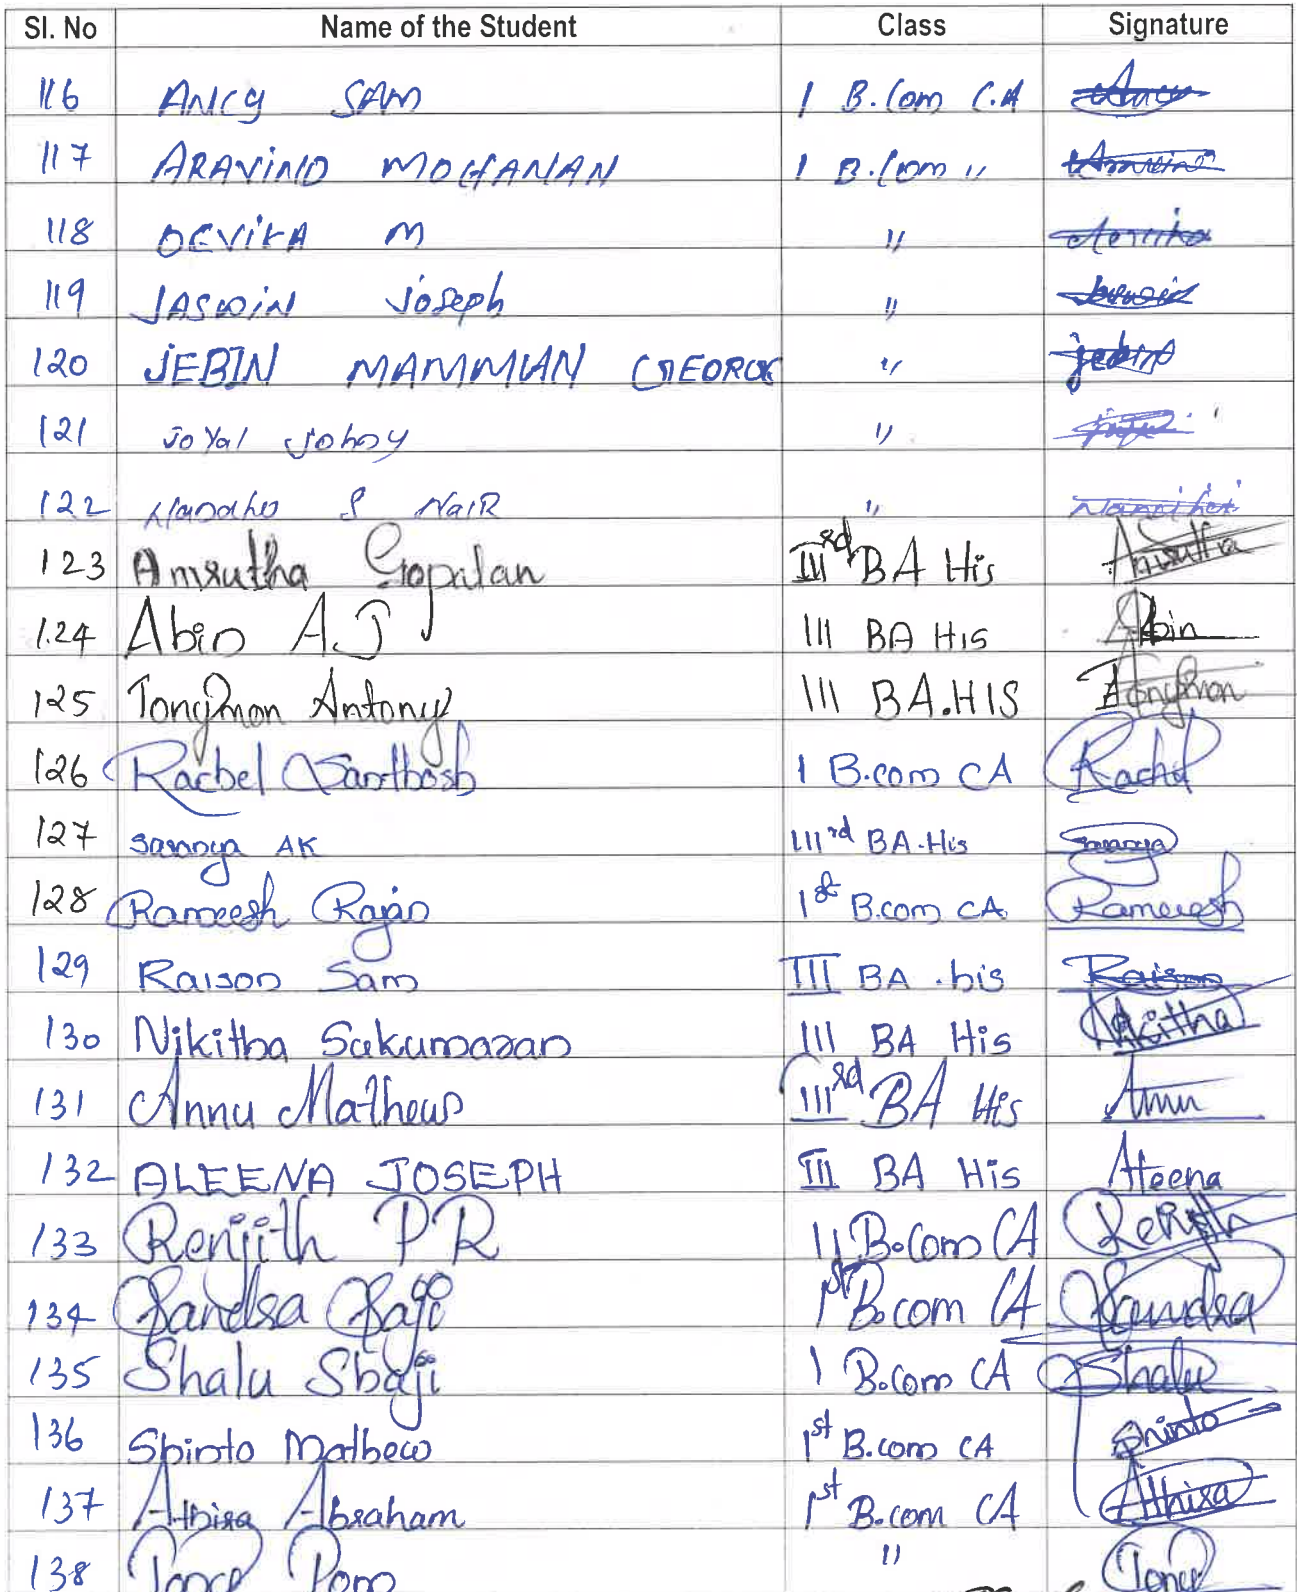 Sl. No Name of the Student Class Signature
116 ANCY SAM I B.Com C.A Ancy
117 ARAVIND MOHANAN I B.Com " Aravind
118 DEVIKA M " devika
119 JASWIN Joseph "
120 JEBIN MAMMUAN GEORGE " jebin
121 Joyal Johny "
122 S NaiR "
123 Amrutha Gopalan III rd BA His Amrutha
124 Abin A.J III BA His Abin
125 Tonymon Antony III BA.HIS Tonymon
126 Rachel Santhosh I B.com CA Rachel
127 Saranya AK III rd BA.His Saranya
128 Rameesh Rajan 1st B.com CA. Rameesh
129 Raison Sam III BA .his Raison
130 Nikitha Sukumaran III BA His Nikitha
131 Annu Mathew III rd BA His Annu
132 ALEENA JOSEPH III BA His Aleena
133 Renjith P R II B.Com CA Renjith
134 Sandra Saji 1st B.com CA Sandra
135 Shalu Shaji I B.Com CA Shalu
136 Shinto Mathew 1st B.com CA Shinto
137 Athira Abraham 1st B.com CA Athira
138 "